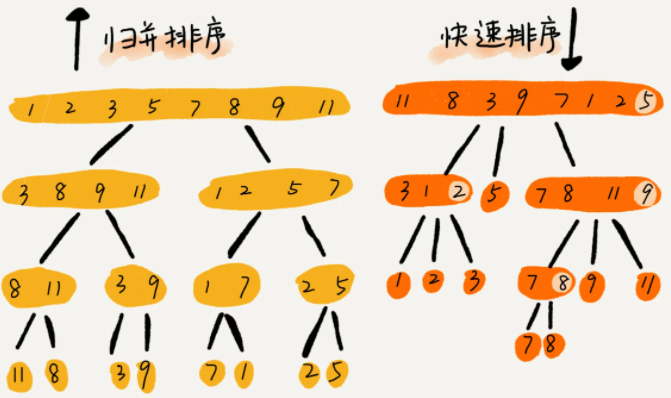 归并排序
1 2 3 5 7 8 9 11
3 8 9 11
1 2 5 7
8 11
3 9
1 7
2 5
11 8
3 9
7 1
2 5
快速排序
11 8 3 9 7 1 2 5
3 1 2
5
7 8 11 9
1
2
3
7 8
9
11
7 8